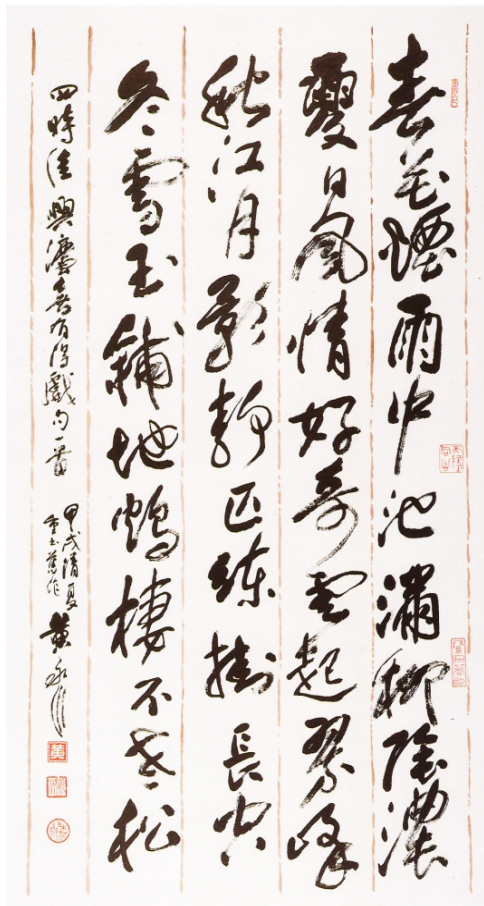 春花煙雨中池滿柳陰濃
夏日風情好奇雲起翠峰
秋江月影靜匹練掛長空
冬雪玉鋪地鶴棲不老松
四時佳興有得戲句一
甲戌清夏
重書舊作
黃
黃